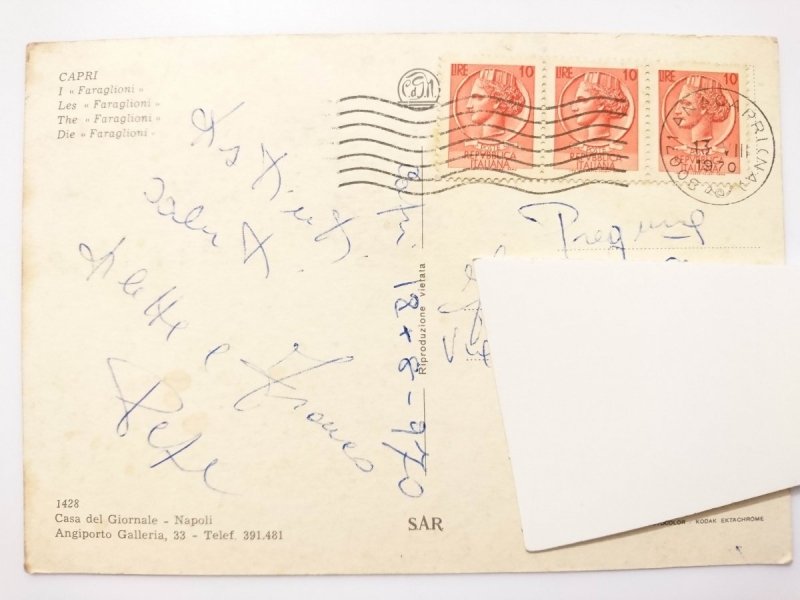 CAPRI
I « Faraglioni »
Les « Faraglioni »
The « Faraglioni »
Die « Faraglioni »
LIRE 10
POSTE
REPUBBLICA
ITALIANA
LIRE 10
POSTE
REPUBBLICA
ITALIANA
LIRE 10
REPUBBLICA
ITALIANA
13 III
1970
Distinti
saluti
e Franco
Pepe
Capri
970
Riproduzione vietata
1428
Casa del Giornale - Napoli
Angiporto Galleria, 33 - Telef. 391.481
SAR
KODAK EKTACHROME